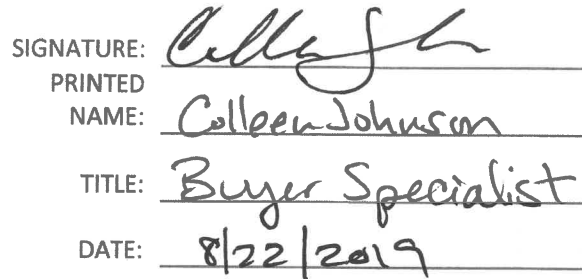 SIGNATURE:
PRINTED
NAME: Colleen Johnson
TITLE: Buyer Specialist
DATE: 8/22/2019